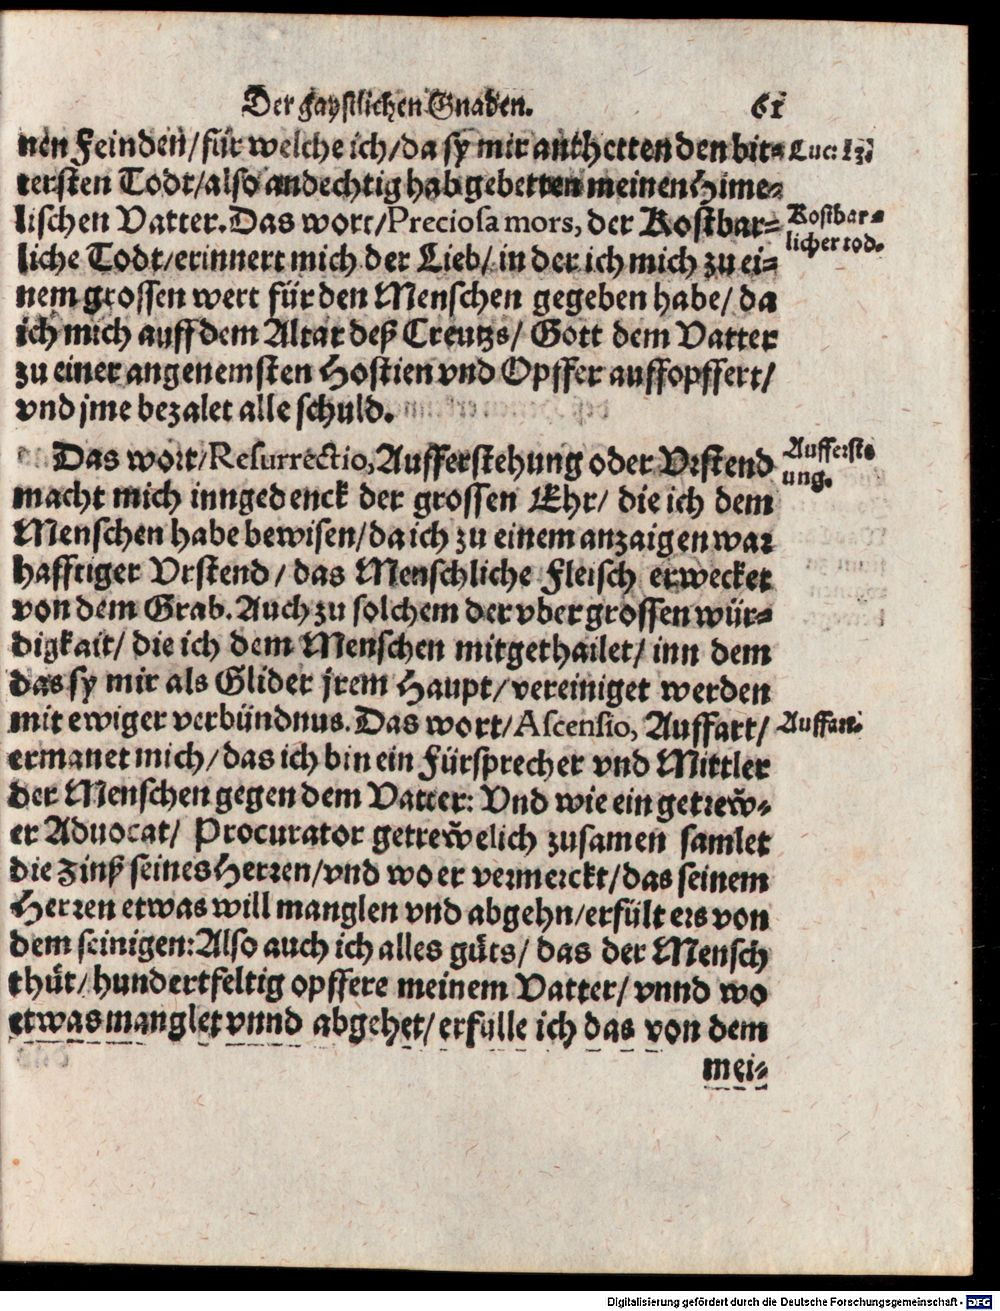 Der gaystlichen Gnaden. 61
nen Feinden/für welche ich/da sy mir anthetten den bit-
tersten Todt/also andechtig hab gebetten meinen Hime-
lischen Vatter. Das wort/Preciosa mors, der Kostbar-
liche Todt/erinnert mich der Lieb/ in der ich mich zu ei-
nem grossen wert für den Menschen gegeben habe/ da
ich mich auff dem Altar deß Creutzs/ Gott dem Vatter
zu einer angenemsten Hostien vnd Opffer auffopffert/
vnd jme bezalet alle schuld.
Das wort/Resurrectio, Aufferstehung oder Vrstend
macht mich inngedenck der grossen Ehr/ die ich dem
Menschen habe bewisen/da ich zu einem anzaigen war
hafftiger Vrstend / das Menschliche Fleisch erwecket
von dem Grab. Auch zu solchem der vber grossen wür-
digkait/ die ich dem Menschen mitgethailet/ inn dem
das sy mir als Glider jrem Haupt/vereiniget werden
mit ewiger verbündnus. Das wort/Ascensio, Auffart/
ermanet mich/das ich bin ein Fürsprecher vnd Mittler
der Menschen gegen dem Vatter: Vnd wie ein getrew̆-
er Aduocat/ Procurator getrew̆elich zusamen samlet
die Zinß seines Herren/vnd wo er vermerckt/das seinem
Herren etwas will manglen vnd abgehn/erfült ers von
dem seinigen: Also auch ich alles gůts/ das der Mensch
thůt/hundertfeltig opffere meinem Vatter/ vnnd wo
etwas manglet vnnd abgehet/ erfulle ich das von dem
mei-
Luc: 23.
Kostbar-
licher tod.
Aufferste
ung.
Auffart.
Digitalisierung gefördert durch die Deutsche Forschungsgemeinschaft - DFG